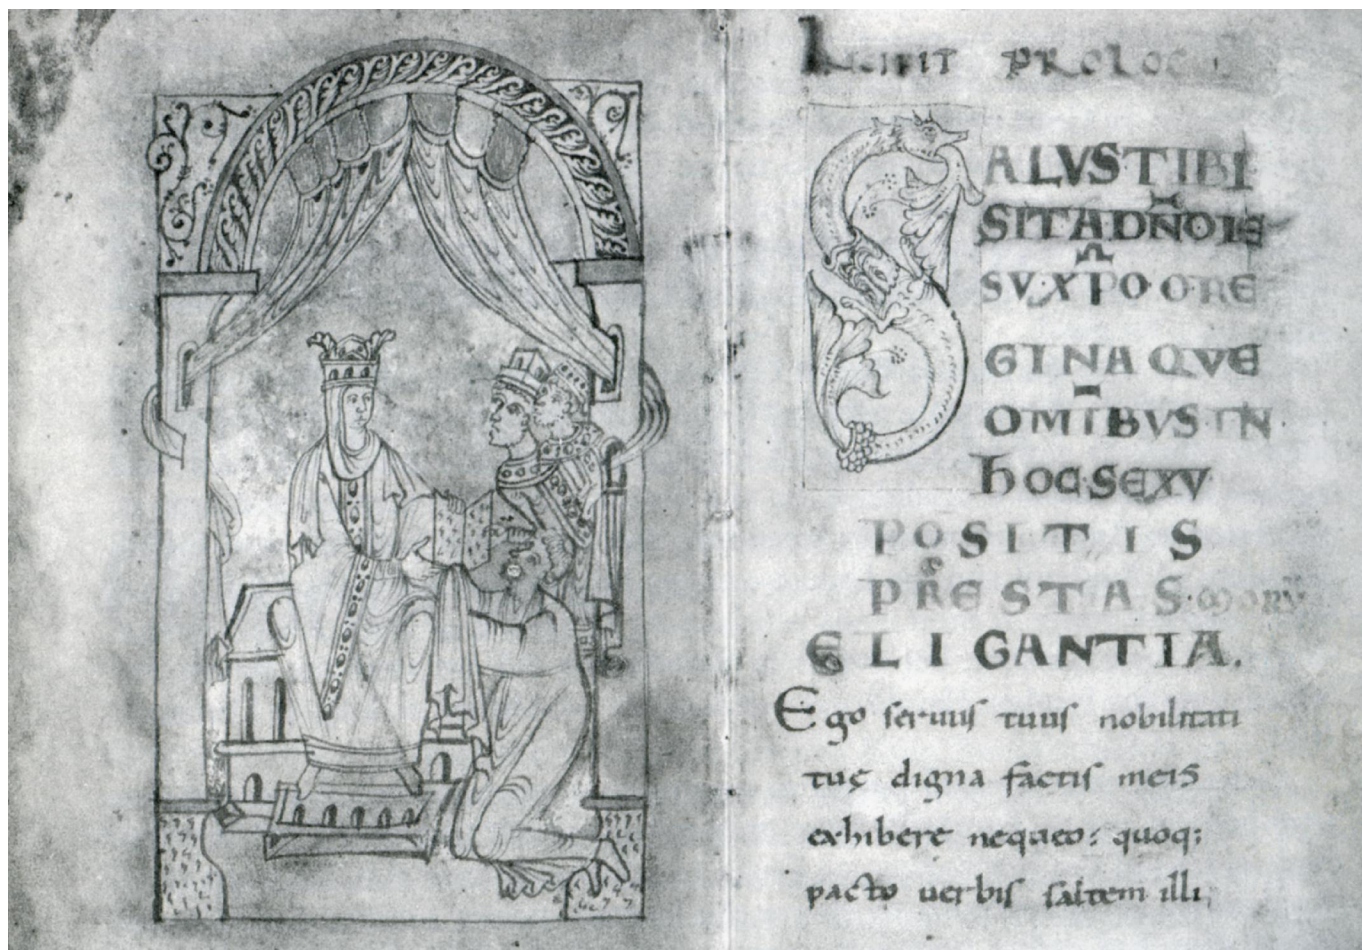 INCIPIT PROLOG
SALVS TIBI
SIT A DÑO IE
SV XP̄O O RE
GINA QVE
OM̄IBVS IN
hOC SEXV
POSITIS
PRESTAS MORŪ
ELIGANTIA.
Ego seruus tuus nobilitati
tuę digna factis meis
exhibere nequeo; quoq;
pacto uerbis saltem illi,